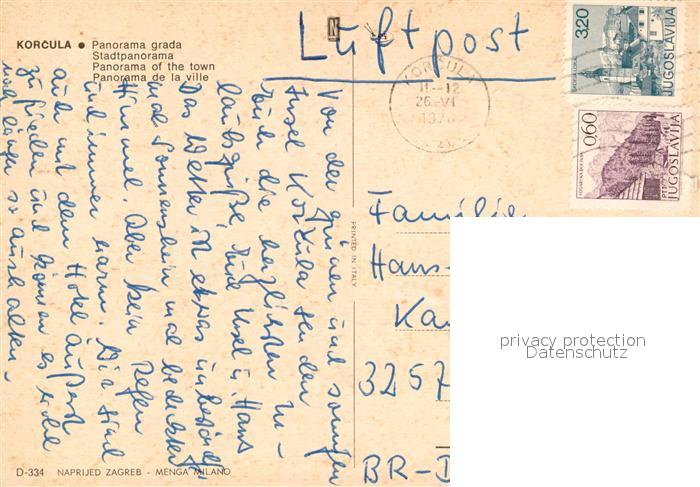 KORCULA ● Panorama grada
Stadtpanorama
Panorama of the town
Panorama de la ville
Luftpost
KORČULA
11-12
26.-VI
197
320
JUGOSLAVIJA
0,60
JUGOSLAVIJA
Von der grünen und sonnigen
Insel Korčula senden
Euch die herzlichsten Ur-
laubsgrüße, Eure Ursel u. Hans
Das Wetter ist etwas unbeständig
mal Sonnenschein mal bedeckter
Himmel. Aber kein Regen
und immer warm. Wir sind
auch mit dem Hotel äußerst
zufrieden und können es wohl
noch länger so aushalten –
PRINTED IN ITALY
Familie
Hans-
3257
BR-D
privacy protection
Datenschutz
D-334 NAPRIJED ZAGREB - MENGA MILANO